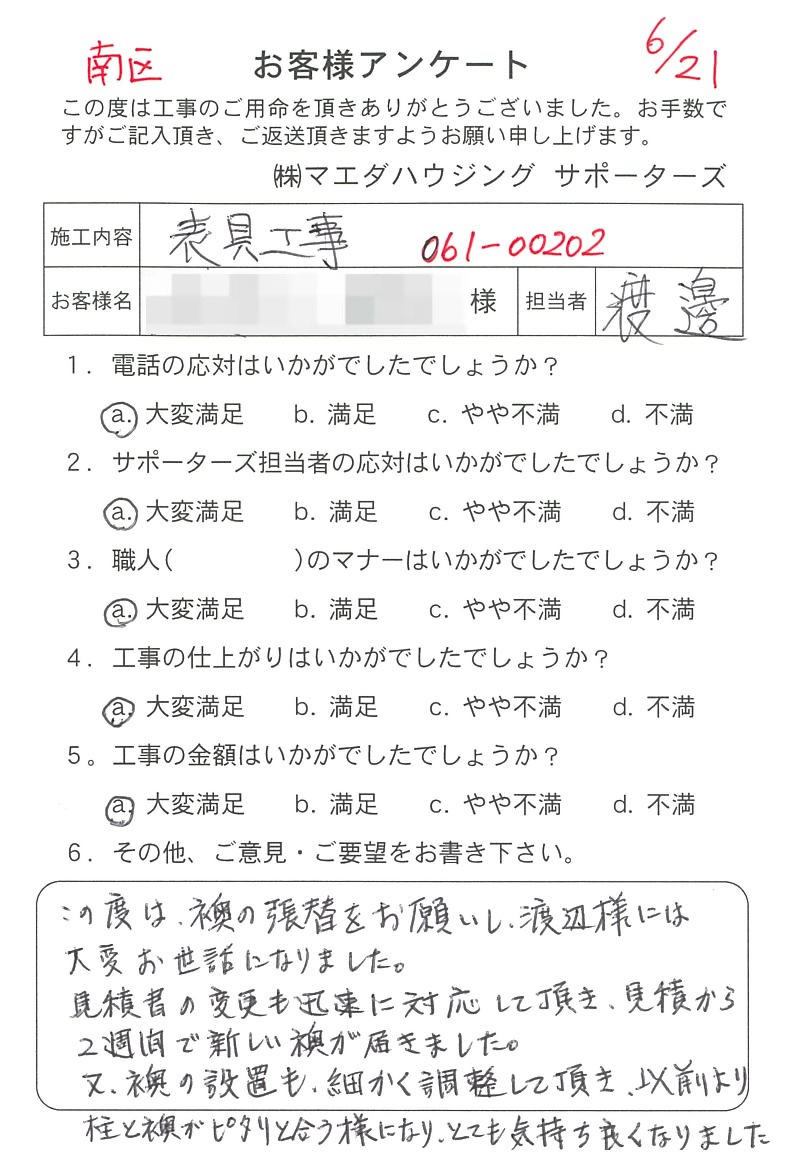 南区 お客様アンケート 6/21
この度は工事のご用命を頂きありがとうございました。お手数で
すがご記入頂き、ご返送頂きますようお願い申し上げます。
㈱マエダハウジング サポーターズ
施工内容 表具工事 061-00202
お客様名 様 担当者 渡邊
1. 電話の応対はいかがでしたでしょうか？
a. 大変満足 b. 満足 c. やや不満 d. 不満
2. サポーターズ担当者の応対はいかがでしたでしょうか？
a. 大変満足 b. 満足 c. やや不満 d. 不満
3. 職人( )のマナーはいかがでしたでしょうか？
a. 大変満足 b. 満足 c. やや不満 d. 不満
4. 工事の仕上がりはいかがでしたでしょうか？
a. 大変満足 b. 満足 c. やや不満 d. 不満
5。工事の金額はいかがでしたでしょうか？
a. 大変満足 b. 満足 c. やや不満 d. 不満
6. その他、ご意見・ご要望をお書き下さい。
この度は、襖の張替をお願いし、渡辺様には
大変お世話になりました。
見積書の変更も迅速に対応して頂き、見積から
2週間で新しい襖が届きました。
又、襖の設置も、細かく調整して頂き、以前より
柱と襖がピタリと合う様になり、とても気持ち良くなりました